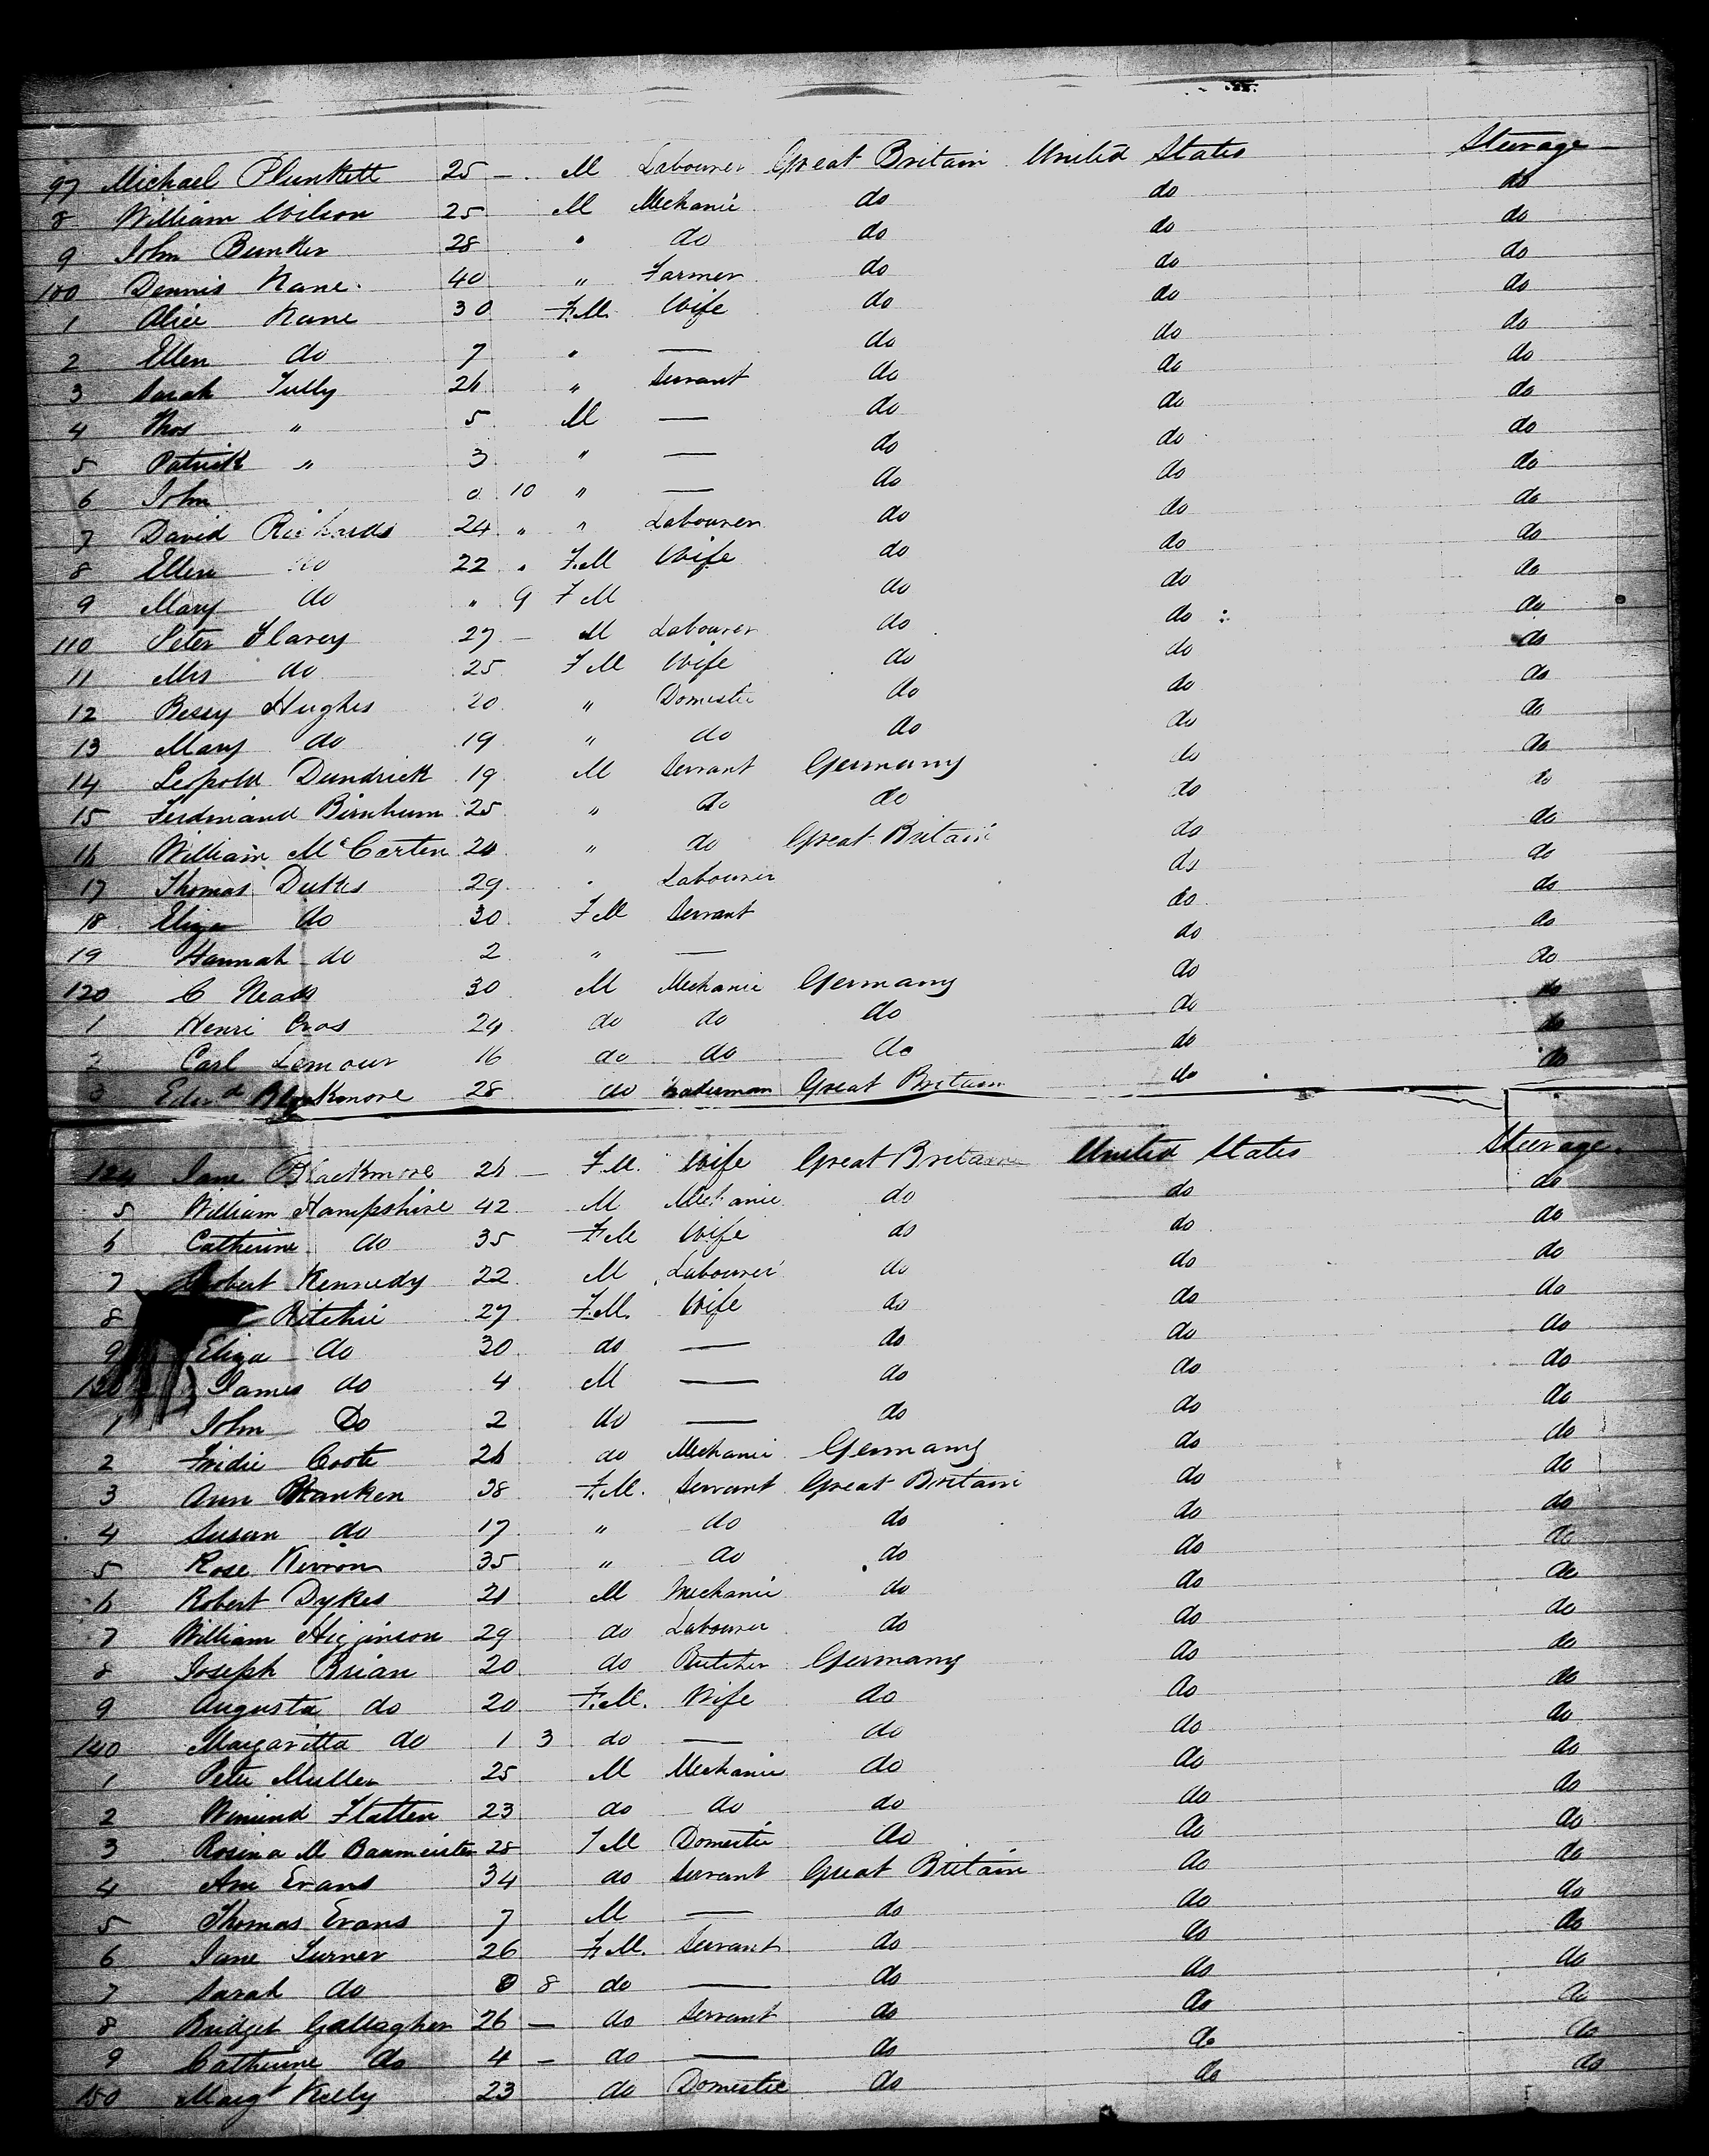 97 Michael Plunkett 25 — M Labourer Great Britain United States Steerage
8 William Wilson 25 M Mechanic do do do
9 John Bunker 28 " do do do do
100 Dennis Kane 40 " Farmer do do do
1 Alice Kane 30 F.M. Wife do do do
2 Ellen do 7 " — do do do
3 Sarah Tully 26 " Servant do do do
4 Thos " 5 M — do do do
5 Patrick " 3 " — do do do
6 John 0 10 " — do do do
7 David Richards 24 " " Labourer do do do
8 Ellen do 22 " F.M Wife do do do
9 Mary do " 9 F M do do do
110 Peter Flavey 27 — M Labourer do do do
11 Mrs do 25 F M Wife do do do
12 Bessy Hughes 20 " Domestic do do do
13 Mary do 19 " do do do do
14 Leopold Dundrick 19 M Servant Germany do do
15 Ferdinand Birnhum 25 " do do do do
16 William McCarten 20 " do Great Britain do do
17 Thomas Dukes 29 " Labourer do do
18 Eliza do 30 F M Servant do do
19 Hannah do 2 " — do do
120 C 30 M Mechanic Germany do do
1 Henri Cros 24 do do do do do
2 Carl Lemour 16 do do do do do
3 Edwd Blackmore 28 do Great Britain do do
124 Jane Blackmore 26 — F.M. Wife Great Britain United States Steerage.
5 William Hampshire 42 M Mechanic do do do
6 Catherine do 35 F.M Wife do do do
7 Robert Kennedy 22 M Labourer do do do
8 Ritchie 27 F.M. Wife do do do
9 Eliza do 30 do — do do do
130 James do 4 M — do do do
1 John Do 2 do — do do do
2 Fridie Coote 26 do Mechanic Germany do do
3 Ann Ranken 38 F.M. Servant Great Britain do do
4 Susan do 17 " do do do do
5 Rose Kerron 35 " do do do do
6 Robert Dykes 21 M Mechanic do do do
7 William Higginson 29 do Labourer do do do
8 Joseph Brian 20 do Butcher Germany do do
9 Augusta do 20 F.M. Wife do do do
140 Margaritta do 1 3 do — do do do
1 Peter Muller 25 M Mechanic do do do
2 Winund Flatten 23 do do do do do
3 Rosina M Baumeister 28 F M Domestic do do do
4 Ann Evans 34 do Servant Great Britain do do
5 Thomas Evans 7 M — do do do
6 Jane Turner 26 F.M. Servant do do do
7 Sarah do 0 8 do — do do do
8 Bridget Gallagher 26 — do Servant do do do
9 Catherine do 4 — do — do do do
150 Margt Kelly 23 do Domestic do do do